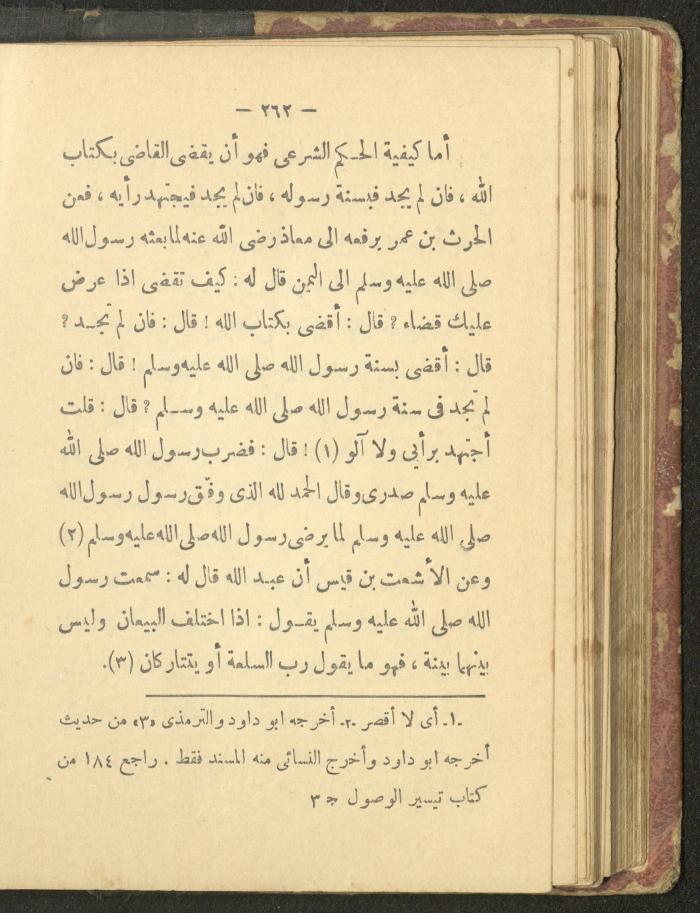 — ٢٦٢ —
أما كيفية الحـكم الشرعى فهو أن يقضى القاضى بكتاب
الله ، فان لم يجد فبسنة رسوله ، فان لم يجد فيجتهد رأيه ، فعن
الحرث بن عمر يرفعه الى معاذ رضى الله عنه لما بعثه رسول الله
صلى الله عليه وسلم الى اليمن قال له : كيف تقضى اذا عرض
عليك قضاء ؟ قال : أقضى بكتاب الله ! قال : فان لم تجـد ؟
قال : أقضى بسنة رسول الله صلى الله عليه وسلم ! قال : فان
لم تجد فى سنة رسول الله صلى الله عليه وسـلم ؟ قال : قلت
أجتهد برأبى ولا آلو (١) ! قال : فضرب رسول الله صلى الله
عليه وسلم صدرى وقال الحمد لله الذى وفّق رسول رسول الله
صلى الله عليه وسلم لما يرضى رسول الله صلى الله عليه وسلم (٢)
وعن الأشعت بن قيس أن عبـد الله قال له : سمعت رسول
الله صلى الله عليه وسلم يقـول : اذا اختلف البيعان وليس
بينهما بينة ، فهو ما يقول رب السلعة أو يتتاركان (٣).
-١- أى لا أقصر -٢- أخرجه ابو داود والترمذى «٣» من حديث
أخرجه ابو داود وأخرج النسائى منه المسند فقط . راجع ١٨٤ من
كتاب تيسير الوصول ج ٣